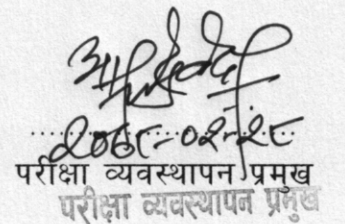 २०७८-०२-२८
परीक्षा व्यवस्थापन प्रमुख
परीक्षा व्यवस्थापन प्रमुख